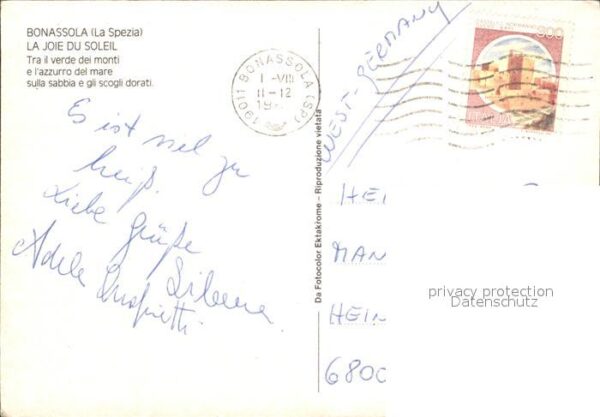 BONASSOLA (La Spezia)
LA JOIE DU SOLEIL
Tra il verde dei monti
e l'azzurro del mare
sulla sabbia e gli scogli dorati.
19011 BONASSOLA (SP)
1-VIII
11-12
19
800
WEST-GERMANY
Es ist viel zu
heiß.
Liebe Grüße
Adele
Da Fotocolor Ektakrome - Riproduzione vietata
HEI
MAN
HEIN
6800
privacy protection
Datenschutz